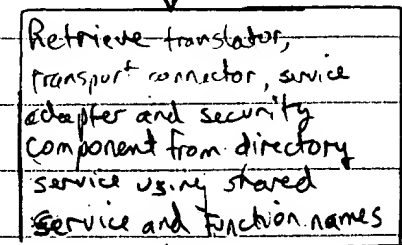 Retrieve translator,
transport connector, service
adapter and security
component from directory
service using shared
service and function names